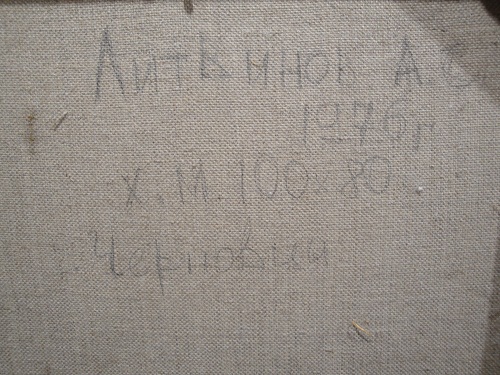 Литвинов А.С
1976г
х.м. 100х80
Черновцы